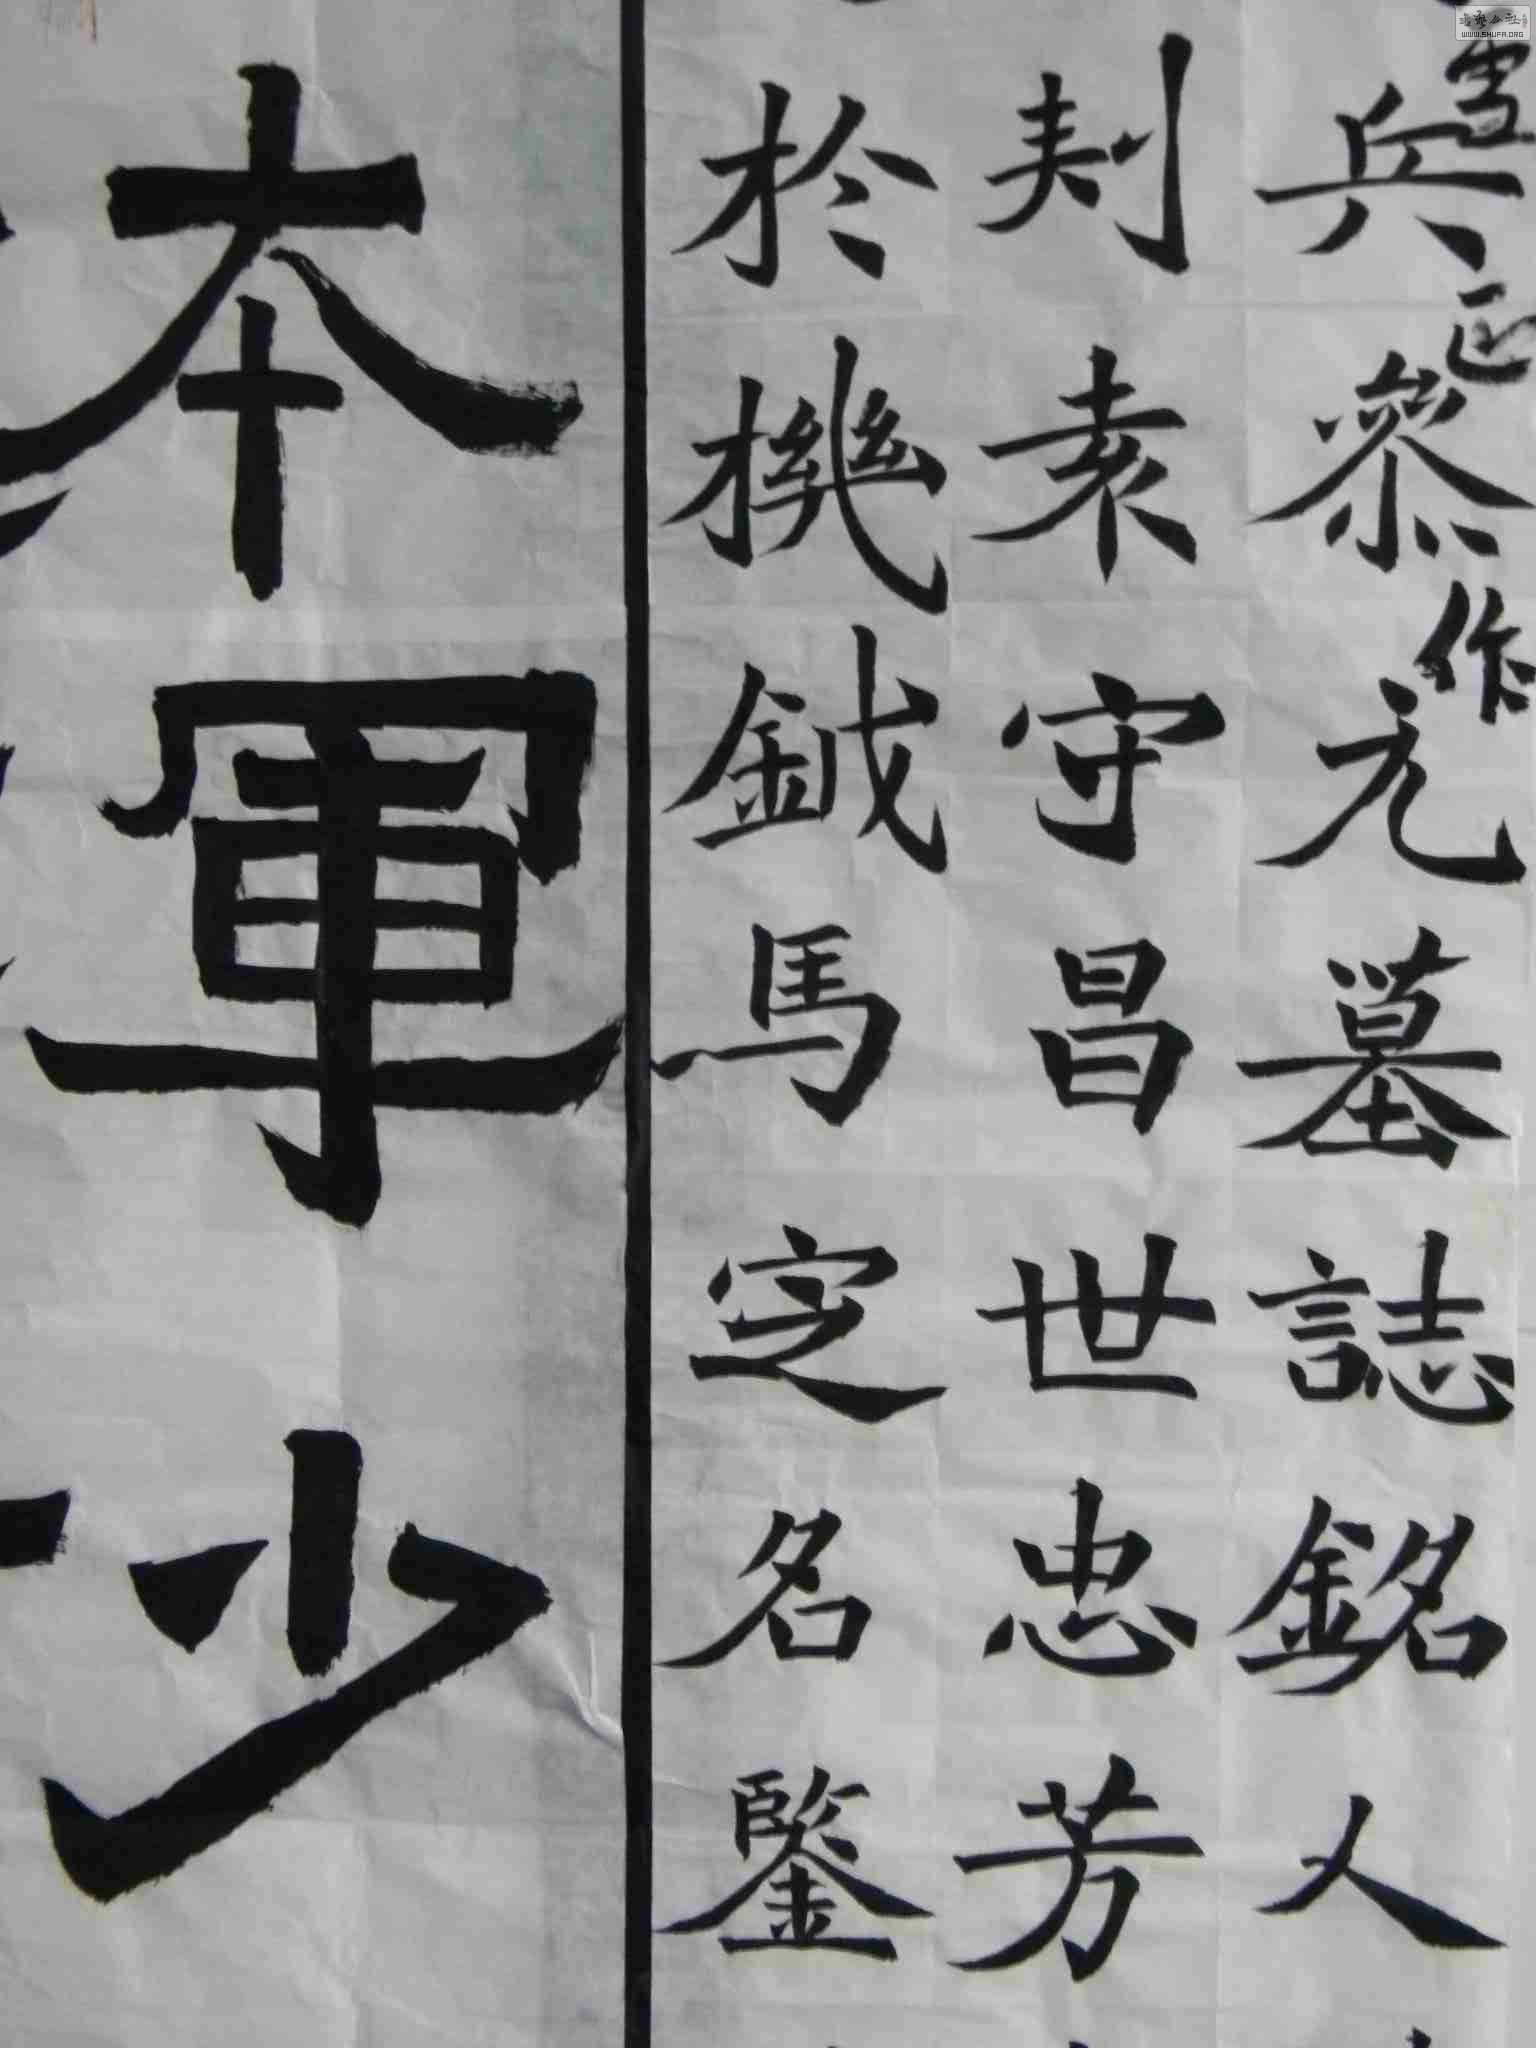 雪正作
兵參元墓誌銘人
刺素守昌世忠芳
於機鉞馬定名鑒
本軍少
書藝公社
WWW.SHUFA.ORG